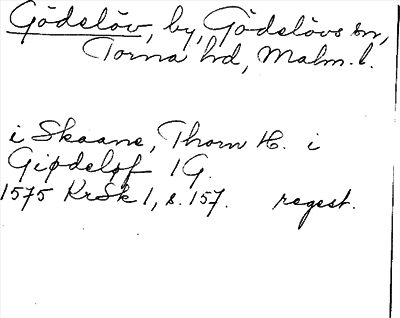 Gödslöv, by, Gödslövs sn,
Torna hd, Malm. l.
i Skaane, Thorn H. i
Giødeløf 1G.
1575 KrSk 1, s. 157. regest.